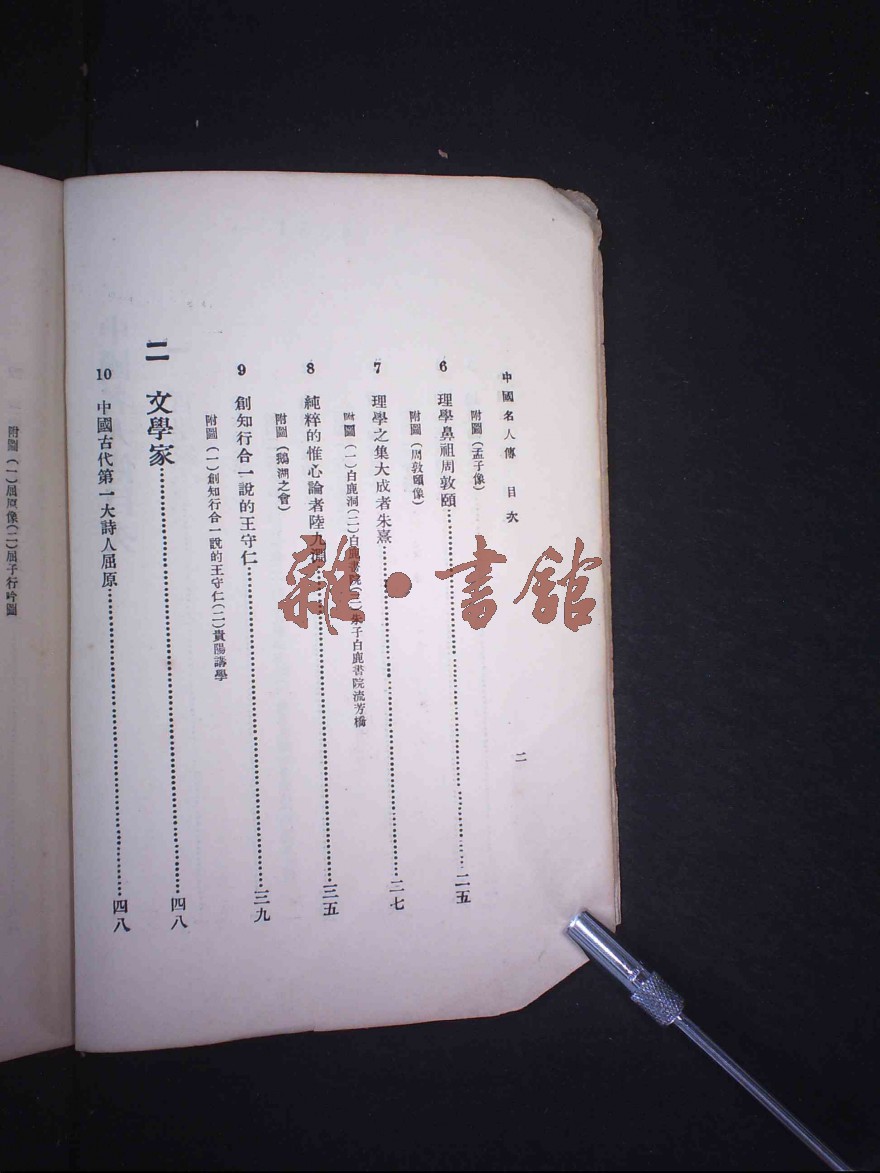 中國名人傳 目次
二
附圖(孟子像)
6 理學鼻祖周敦頤……二五
附圖(周敦頤像)
7 理學之集大成者朱熹……二七
附圖(一)白鹿洞(二)白鹿書院(三)朱子白鹿書院流芳橋
8 純粹的惟心論者陸九淵……三五
附圖(鵝湖之會)
9 創知行合一說的王守仁……三九
附圖(一)創知行合一說的王守仁(二)貴陽講學
二 文學家……四八
10 中國古代第一大詩人屈原……四八
附圖(一)屈原像(二)屈子行吟圖
雜·書館